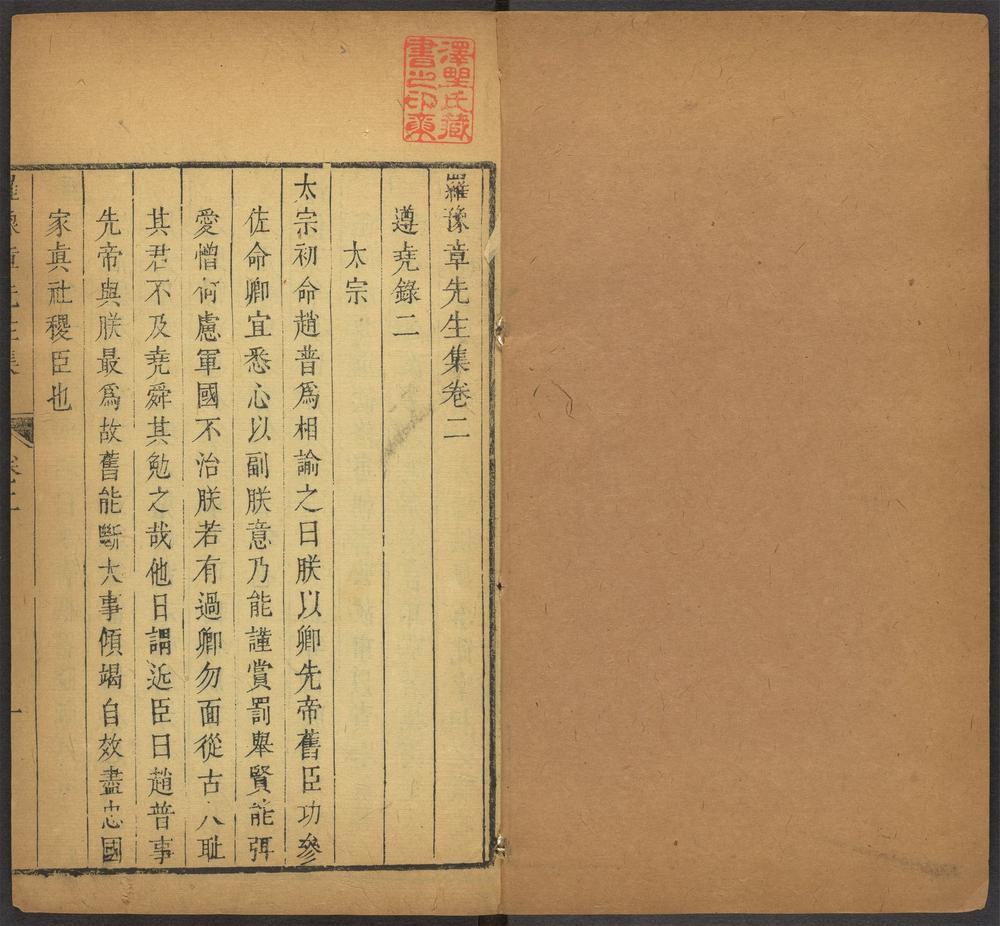 澤埜氏藏
書之印
羅豫章先生集卷二
遵堯錄二
太宗
太宗初命趙普爲相諭之曰朕以卿先帝舊臣功參
佐命卿宜悉心以副朕意乃能謹賞罰舉賢能弭
愛憎何慮軍國不治朕若有過卿勿面從古人耻
其君不及堯舜其勉之哉他日謂近臣曰趙普事
先帝與朕最爲故舊能斷大事傾竭自效盡忠國
家眞社稷臣也
羅豫章先生集
卷二
一